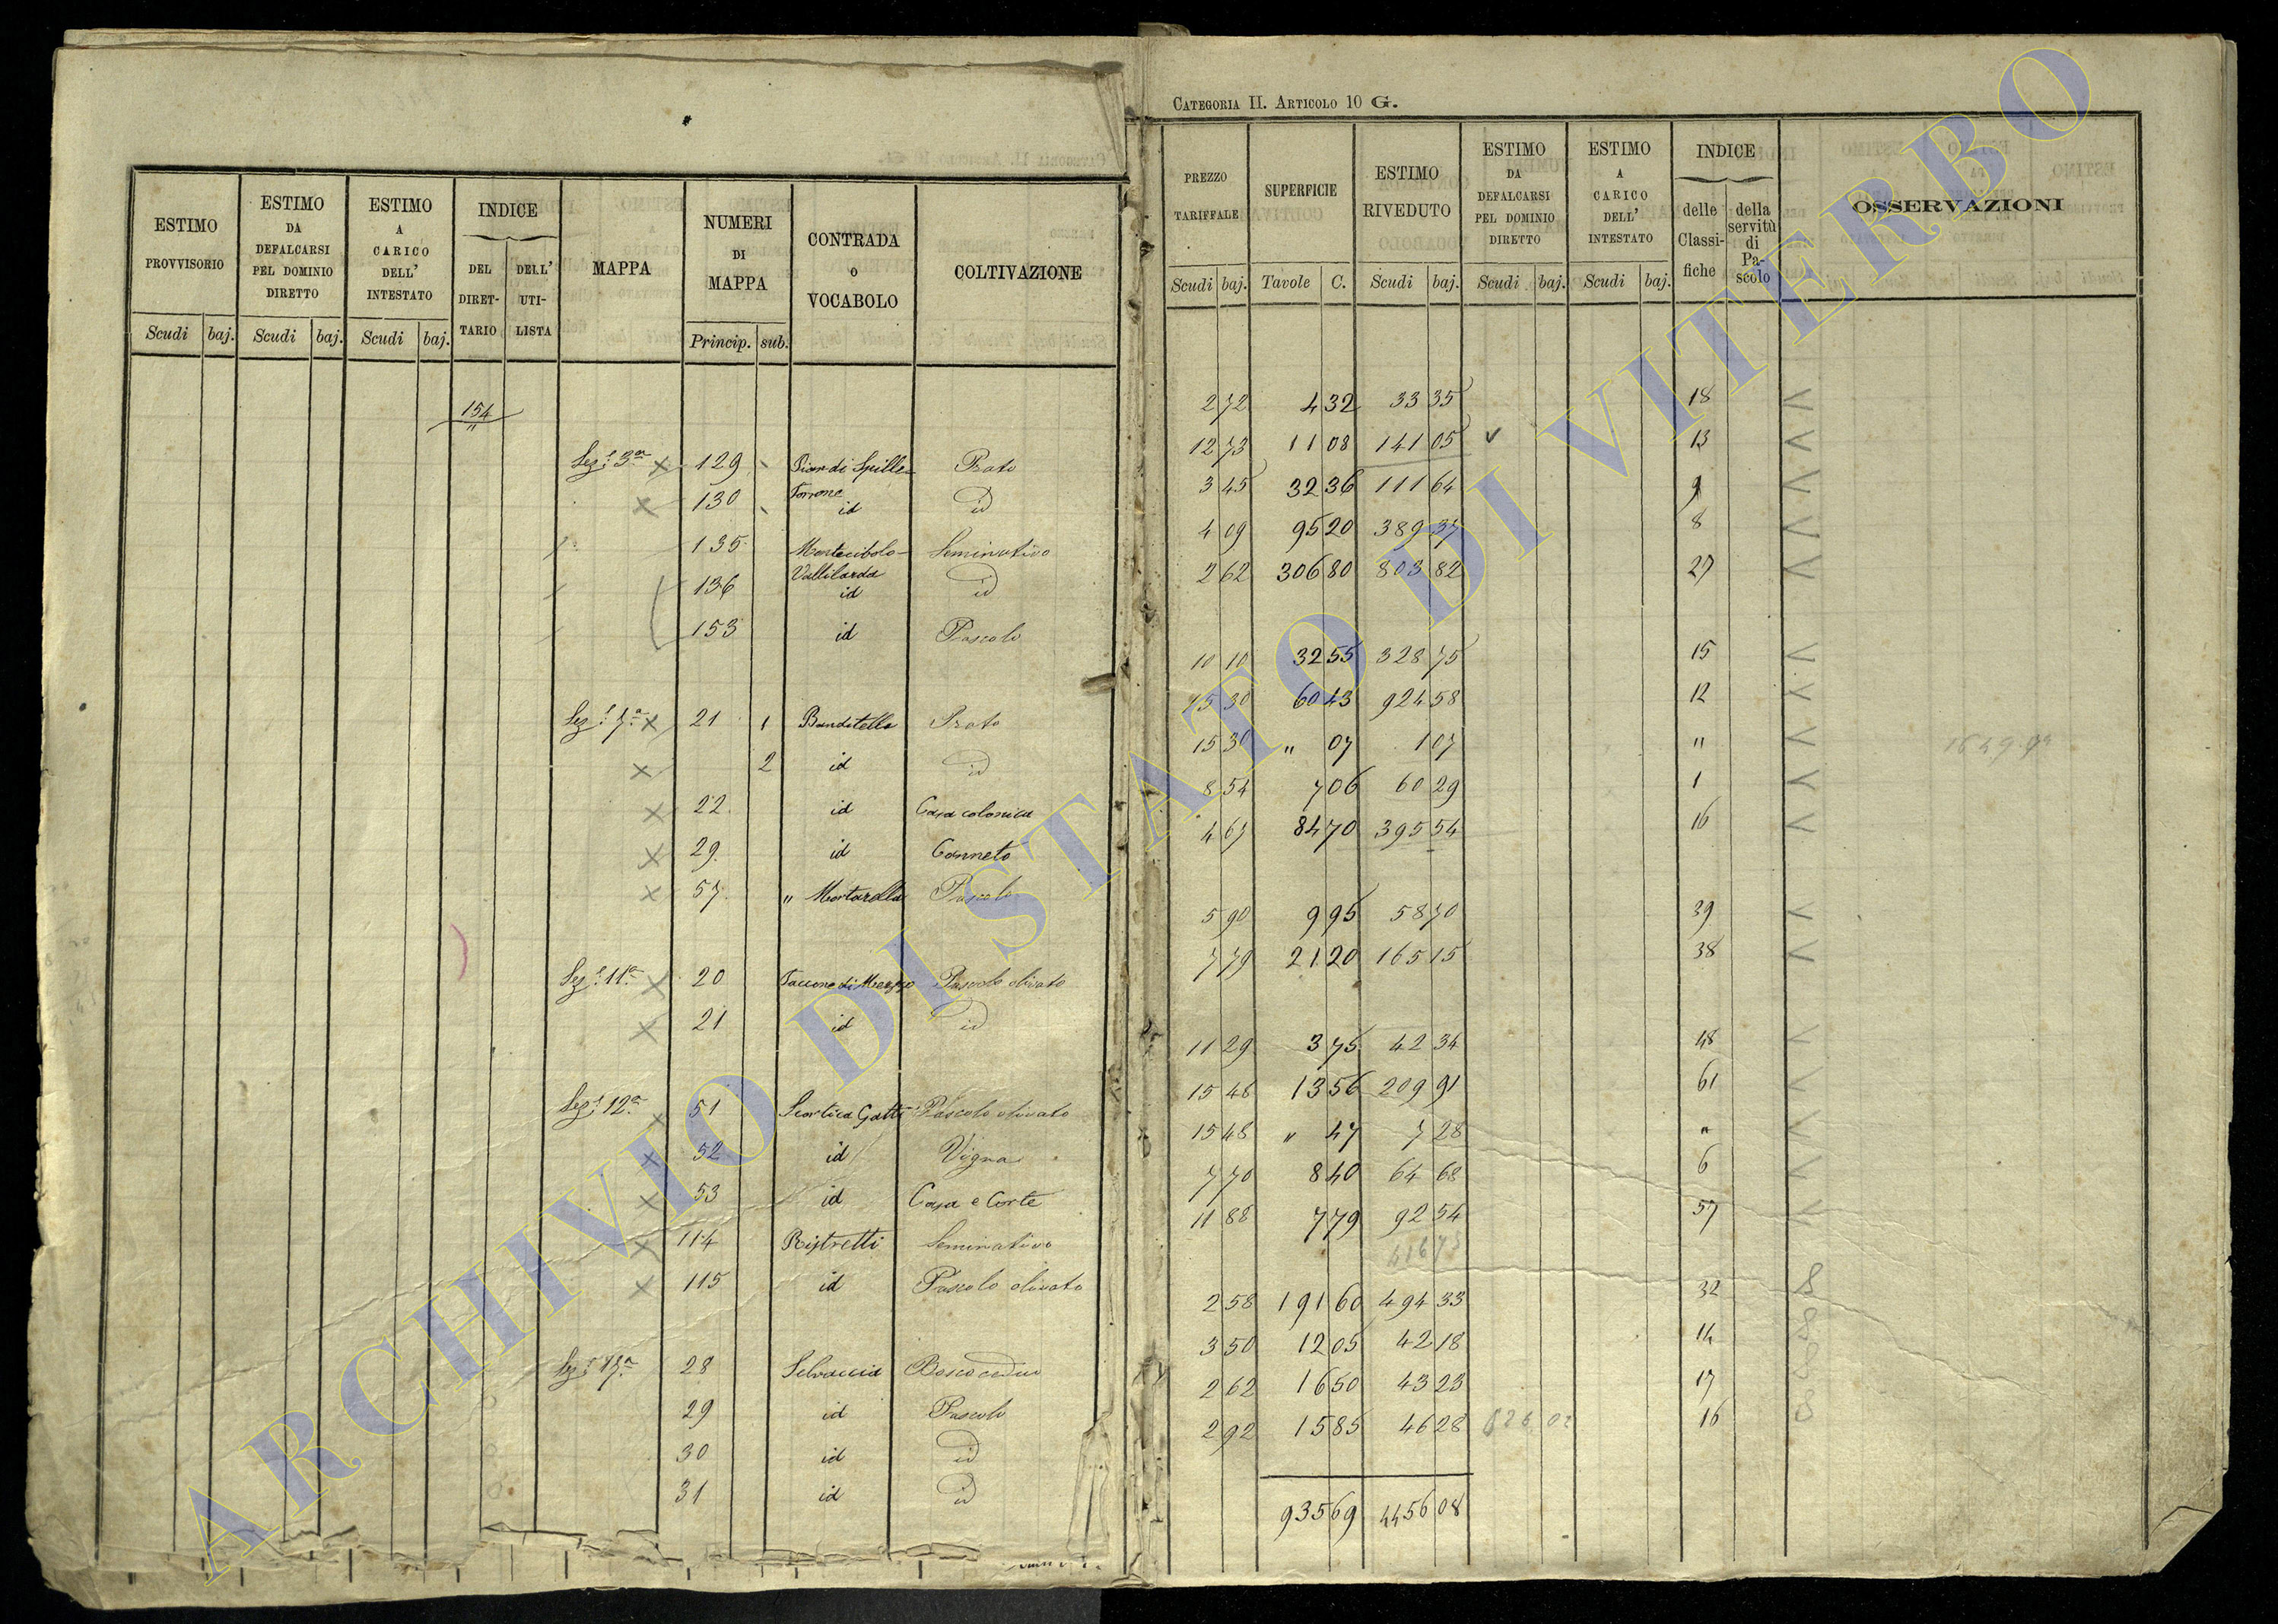 CATEGORIA II. ARTICOLO 10 G.
ESTIMO PROVVISORIO
ESTIMO DA DEFALCARSI PEL DOMINIO DIRETTO
ESTIMO A CARICO DELL' INTESTATO
INDICE
DEL DIRETTARIO
DELL' UTILISTA
MAPPA
NUMERI DI MAPPA
CONTRADA O VOCABOLO
COLTIVAZIONE
Scudi baj. Scudi baj. Scudi baj. Princip. sub.
154
"
Sez.e 3a 129 Pian di Spille Prato
130 Torrone id id
135 Montecibolo Seminativo
136 Vallilarda id id
153 id Pascolo
Sez.e 7a 21 1 Banditella Prato
2 id id
22 id Casa colonica
29 id Canneto
57 " Mortarella Pascolo
Sez.e 11a 20 Paccone di Mezzo Pascolo olivato
21 id id
Sez.e 12a 51 Scortica Gatti Pascolo olivato
52 id Vigna
53 id Casa e Corte
114 Ristretti Seminativo
115 id Pascolo olivato
Sez.e 28 Selvaccia Bosco ceduo
29 id Pascolo
30 id id
31 id id
PREZZO TARIFFALE
SUPERFICIE
ESTIMO RIVEDUTO
ESTIMO DA DEFALCARSI PEL DOMINIO DIRETTO
ESTIMO A CARICO DELL' INTESTATO
INDICE
delle Classifiche
della servitù di Pascolo
OSSERVAZIONI
Scudi baj. Tavole C. Scudi baj. Scudi baj. Scudi baj.
2 72 4 32 33 35 18
12 73 11 08 141 05 13
3 45 32 36 111 64 9
4 09 95 20 389 37 8
2 62 306 80 803 82 27
10 10 32 55 328 75 15
15 30 60 43 924 58 12
15 30 " 07 1 07 "
8 54 7 06 60 29 1
4 67 84 70 395 54 16
5 90 9 95 58 70 39
7 79 21 20 165 15 38
11 29 3 75 42 34 48
15 48 13 56 209 91 61
15 48 " 47 7 28 "
7 70 8 40 64 68 6
11 88 7 79 92 54 57
416 73
2 58 191 60 494 33 32
3 50 12 05 42 18 14
2 62 16 50 43 23 17
2 92 15 85 46 28 626 02 16
935 69 4456 08
ARCHIVIO DI STATO DI VITERBO